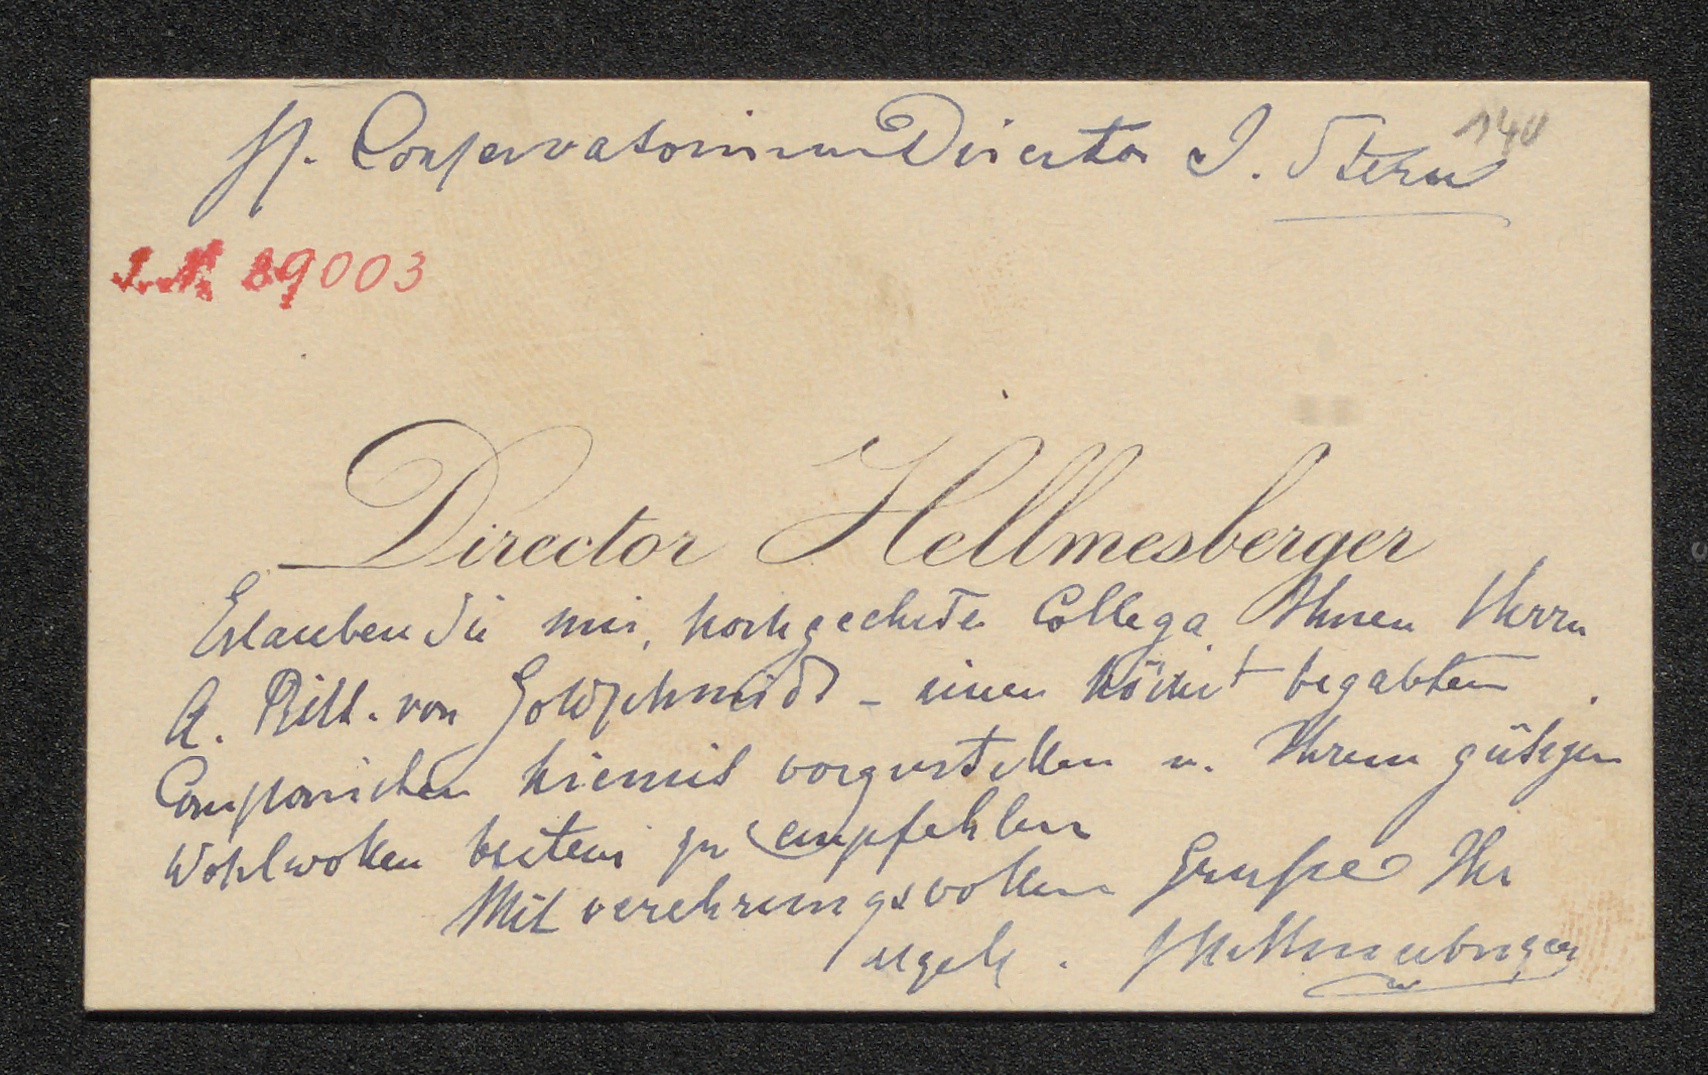 H. Conservatorium Director J. Stern
140
I.N. 89003
Director Hellmesberger
Erlauben Sie mir, hochgeehrter Collega, Ihnen Herrn
A. Ritt. von Goldschmidt – einen höchst begabten
Componisten hiemit vorzustellen u. Ihrem gütigen
Wohlwollen bestens zu empfehlen
Mit verehrungsvollem Gruße Ihr
ergeb. JHellmesberger